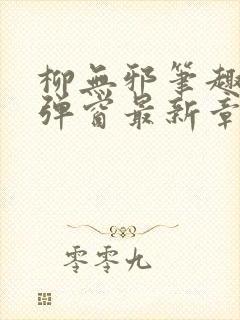 柳無邪筆趣
彈窗最新章
零零九